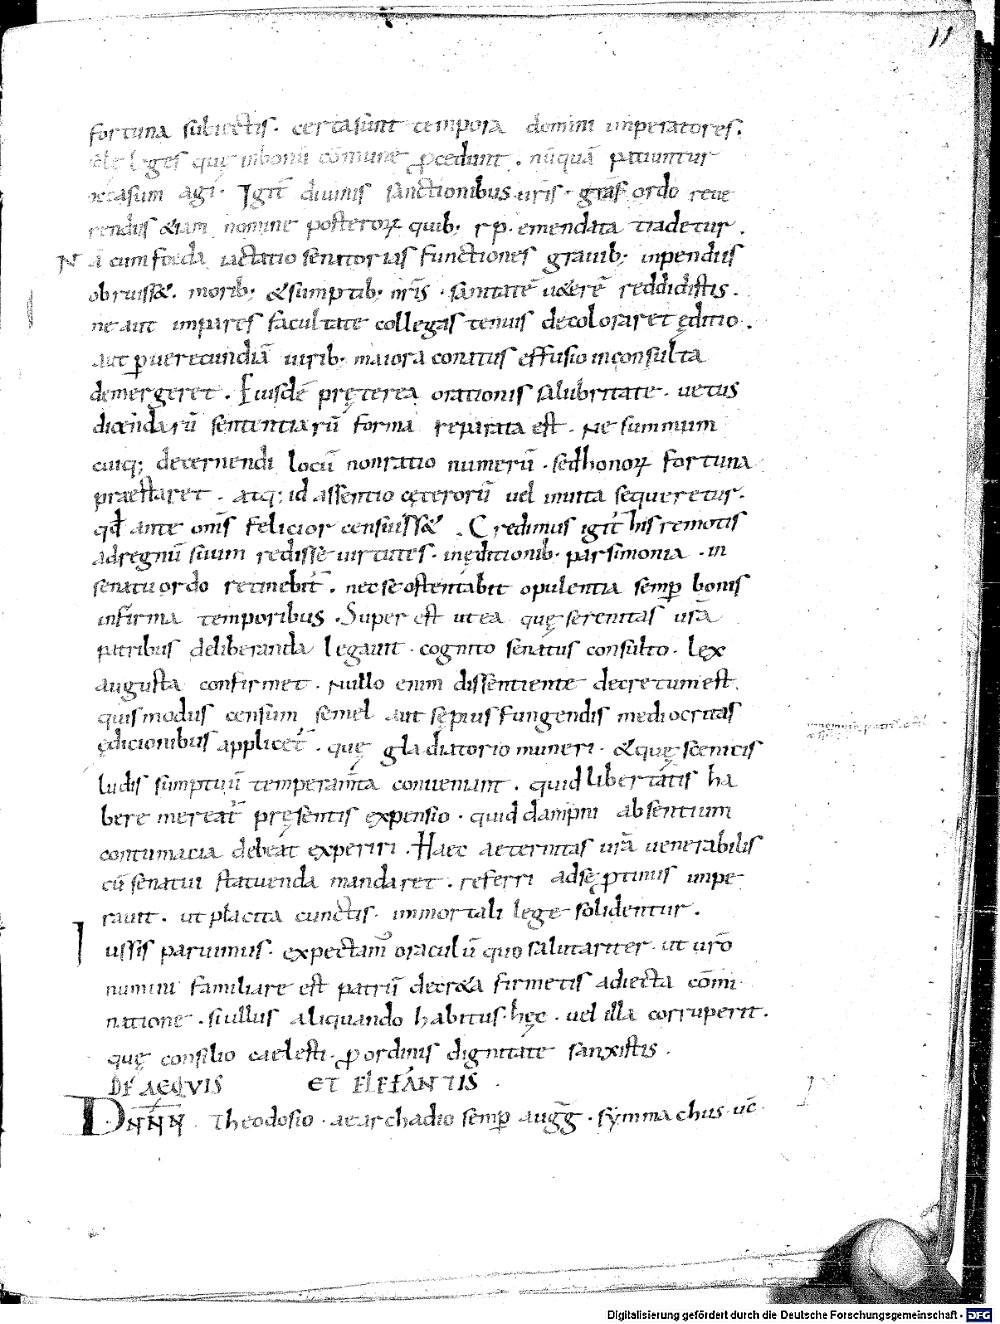 11
fortuna subiectis. certa sunt tempora domini imperatores.
leges quę inbonū cōmune ꝓcedunt. nūquā patiuntur
occasum agi. Igit̄ diuinis sanctionibus uris̄. gras̄ ordo reue
rendus &iam nomine posteroꝝ quib; rp. emendata tradetur.
Nā cum foeda iactatio senatorias functiones grauib; inpendiis
obruiss&. morib; & sumptib; nris̄. sanitatē u&erē reddidistis.
ne aut impares facultate collegas tenuis decoloraret ęditio.
aut ꝑuerecundiā uirib; maiora conatus effusio inconsulta
demergeret. Eiusdē pręterea orationis salubritate. uetus
dicendarū sententiarū forma reparata est. Ne summum
cuiq; decernendi locū non ratio numerū. sed honoꝝ fortuna
praestaret. atq; id assentio cęterorū uel inuita sequeretur.
qd̄ ante omīs felicior censuiss&. Credimus igit̄ his remotis
adregnū suum redisse uirtutes. inęditionib; parsimonia. in
senatu ordo retinebit̄. nec se ostentabit opulentia semꝑ bonis
infirma temporibus. Super est ut ea quę serenitas urā
patribus deliberanda legauit. cognito senatus consulto. lex
augusta confirmet. Nullo enim dissentiente decretum est.
quis modus censum semel aut sępius fungendis mediocritas
ędicionibus applicet̄. quę gladiatorio muneri. &quę scenicis
ludis sumptuū temperam̄ta conueniant. quid libertatis ha
bere mereat̄ pręsentis expensio. quid dampni absentium
contumacia debeat experiri. Haec aeternitas urā uenerabilis
cū senatui statuenda mandaret. referri adse ꝓtinus impe
rauit. ut placita cunctis. immortali lege solidentur.
Iussis paruimus. expectam̄ oraculū quo salutariter. ut urō
numini familiare est patrū decr&a firmetis adiecta cōmi
natione. si ullus aliquando habitus. hęc. uel illa corruperit.
quę consilio caelesti. ꝓ ordinis dignitate sanxistis.
DE AEQVIS ET ELEFANTIS.
D. NNN. Theodosio. ae archadio semꝑ augg̅. symmachus. uc̄
Digitalisierung gefördert durch die Deutsche Forschungsgemeinschaft - DFG